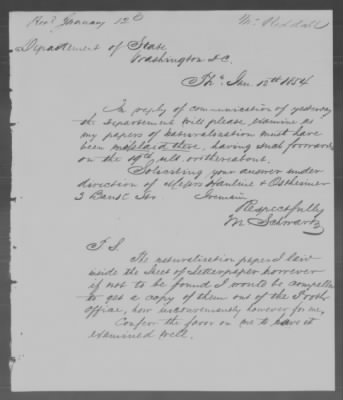 Recd January 12th
Department of State
Washington D.C.
Jan. 1854.
In reply of communication of yesterday
the Departement will please examine as
my papers of naturalisation must have
been mislaid there, having such forwarded
on the 19th ult. or thereabout.
Soliciting your answer under
direction of Messrs & Ostheimer
I remain
Respectfully
M Schwartz
P.S.
The naturalisation paper I laid
inside the sheet of letterpaper however
if not to be found I would be compelled
to get a copy of them out of the
office, how inconveniently however for me,
Confer the favor on me to have it
examined well.